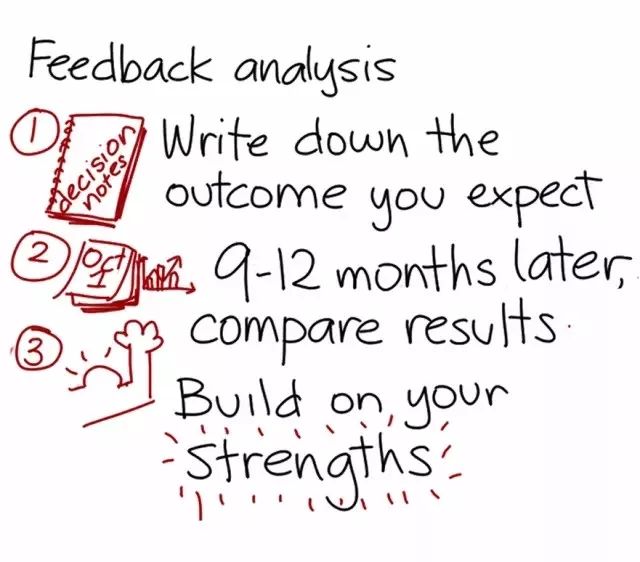 Feedback analysis
1
decision
notes
Write down the
outcome you expect
2
Oct
1
9-12 months later,
compare results.
3
Build on your
strengths